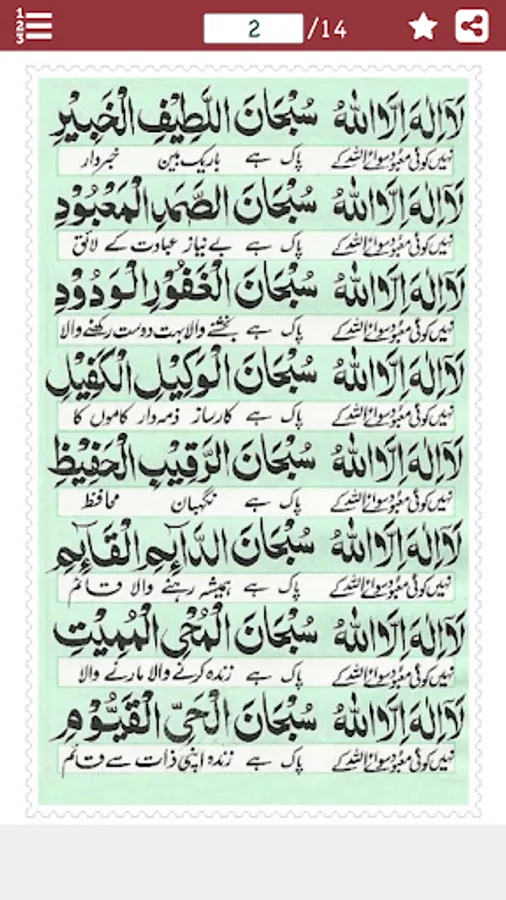 1
2
3
2 /14
لَآ اِلٰهَ اِلَّا اللهُ سُبْحَانَ اللَّطِيْفِ الْخَبِيْرِ
نہیں کوئی معبود سوائے اللہ کے پاک ہے باریک بین خبردار
لَآ اِلٰهَ اِلَّا اللهُ سُبْحَانَ الصَّمَدِ الْمَعْبُوْدِ
نہیں کوئی معبود سوائے اللہ کے پاک ہے بے نیاز عبادت کے لائق
لَآ اِلٰهَ اِلَّا اللهُ سُبْحَانَ الْغَفُوْرِ الْوَدُوْدِ
نہیں کوئی معبود سوائے اللہ کے پاک ہے بخشنے والا بہت دوست رکھنے والا
لَآ اِلٰهَ اِلَّا اللهُ سُبْحَانَ الْوَكِيْلِ الْكَفِيْلِ
نہیں کوئی معبود سوائے اللہ کے پاک ہے کارساز ذمہ دار کاموں کا
لَآ اِلٰهَ اِلَّا اللهُ سُبْحَانَ الرَّقِيْبِ الْحَفِيْظِ
نہیں کوئی معبود سوائے اللہ کے پاک ہے نگہبان محافظ
لَآ اِلٰهَ اِلَّا اللهُ سُبْحَانَ الدَّآئِمِ الْقَآئِمِ
نہیں کوئی معبود سوائے اللہ کے پاک ہے ہمیشہ رہنے والا قائم
لَآ اِلٰهَ اِلَّا اللهُ سُبْحَانَ الْمُحْيِ الْمُمِيْتِ
نہیں کوئی معبود سوائے اللہ کے پاک ہے زندہ کرنے والا مارنے والا
لَآ اِلٰهَ اِلَّا اللهُ سُبْحَانَ الْحَيِّ الْقَيُّوْمِ
نہیں کوئی معبود سوائے اللہ کے پاک ہے زندہ اپنی ذات سے قائم